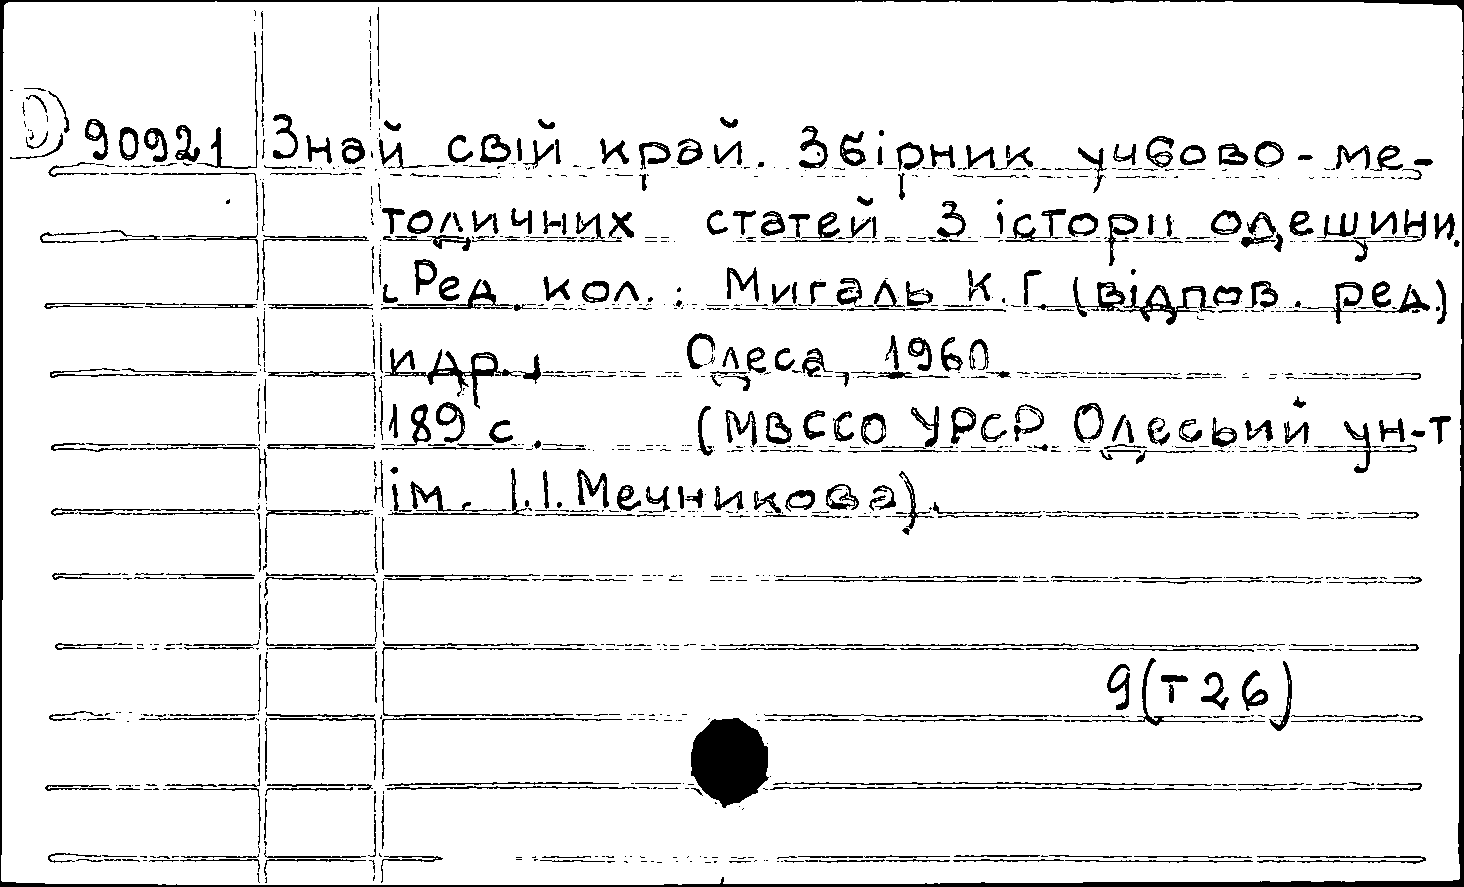 90921 Знай свій край. Збірник учбово-ме-
тодичних статей з історіі одещини.
[Ред. кол.: Мигаль К.Г. (відпов. ред.)
и др.] Одеса, 1960.
189 с. (МВССО УРСР. Одеський ун-т
ім. І.І. Мечникова).
9(Т26)